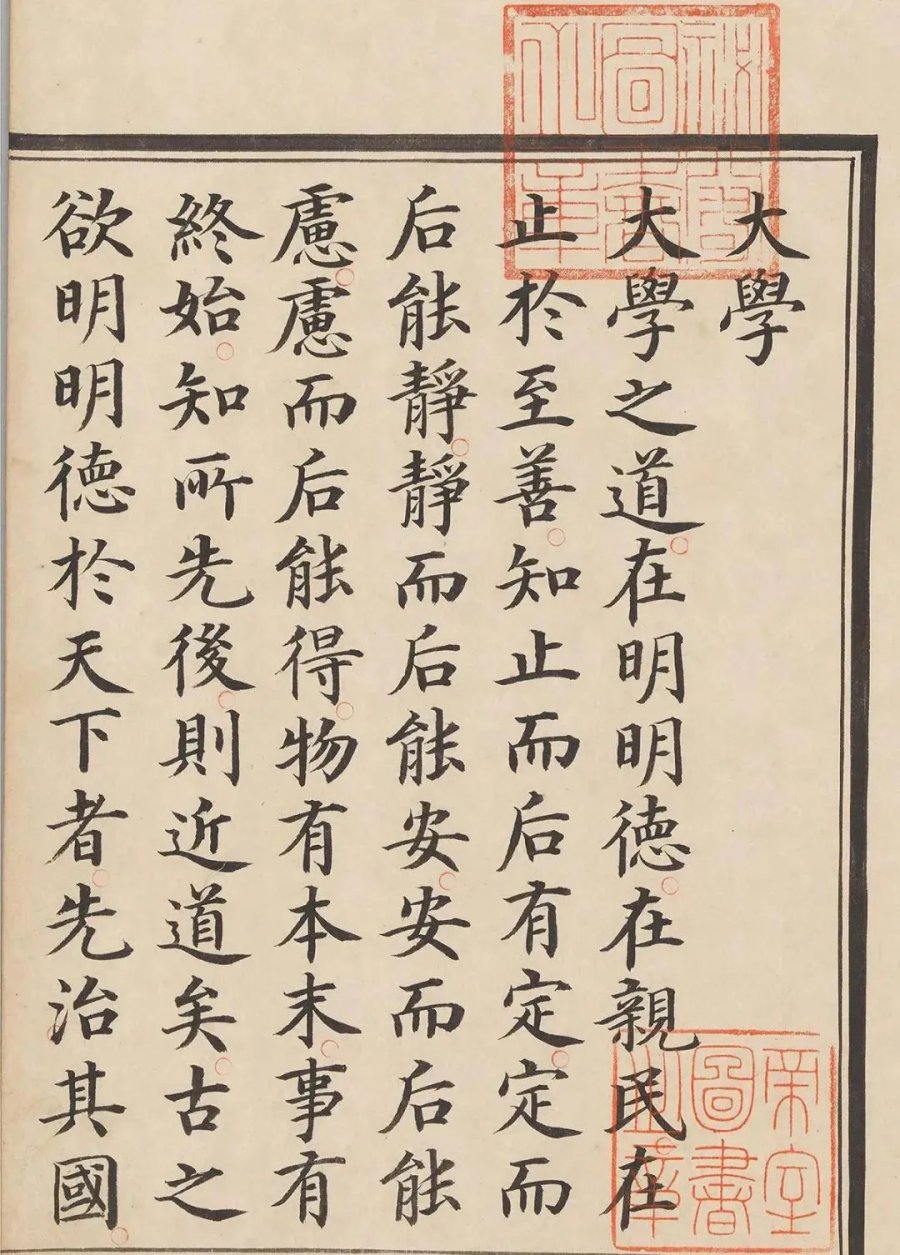 大學
大學之道在明明德在親民在
止於至善知止而后有定定而
后能靜靜而后能安安而后能
慮慮而后能得物有本末事有
終始知所先後則近道矣古之
欲明明德於天下者先治其國
秘閣
圖書
之章
帝室
圖書
之章